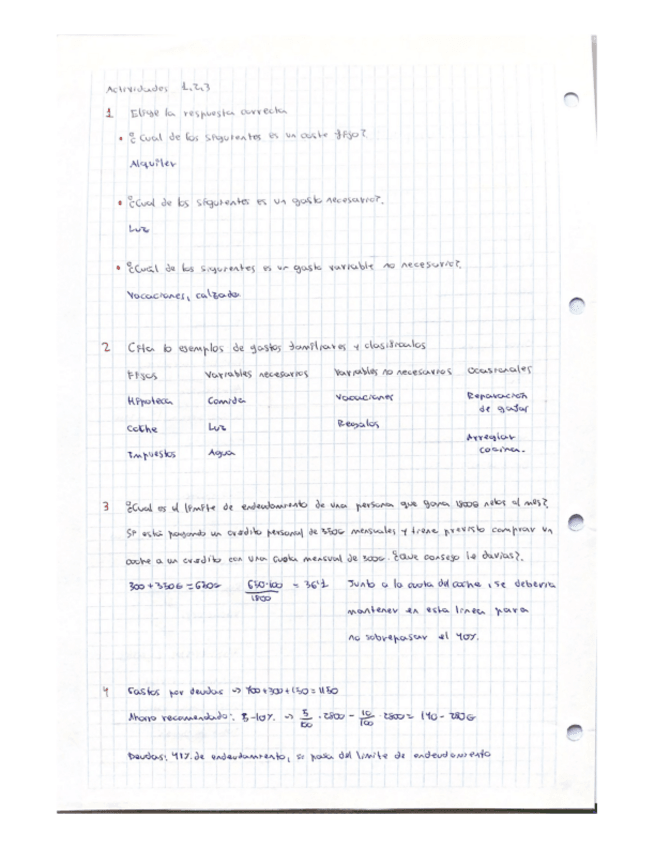 Actividades 1,2,3
1 Elige la respuesta correcta
• ¿Cual de los siguientes es un coste fijo?
Alquiler
• ¿Cual de los siguientes es un gasto necesario?.
Luz
• ¿Cuál de los siguientes es un gasto variable no necesario?.
Vacaciones, calzado
2 Cita 10 ejemplos de gastos familiares y clasificalos
Fijos Variables necesarios Variables no necesarios Ocasionales
Hipoteca Comida Vacaciones Reparación
de gafas
Coche Luz Regalos
Arreglar
Impuestos Agua cocina.
3 ¿Cual es el limite de endeudamiento de una persona que gana 1800€ netos al mes?
Si está pagando un credito personal de 350€ mensuales y tiene previsto comprar un
coche a un credito con una cuota mensual de 300€. ¿Que consejo le darias?.
300 + 350€ = 650€ 650·100 / 1800 = 36'1 Junto a la cuota del coche, se deberia
mantener en esta linea para
no sobrepasar el 40%.
4 Gastos por deudas => 700+300+150 = 1150
Ahorro recomendado: 5-10% => 5/100 · 2800 - 10/100 · 2800 = 140 - 280€
Deudas: 41% de endeudamiento, se pasa del limite de endeudamiento